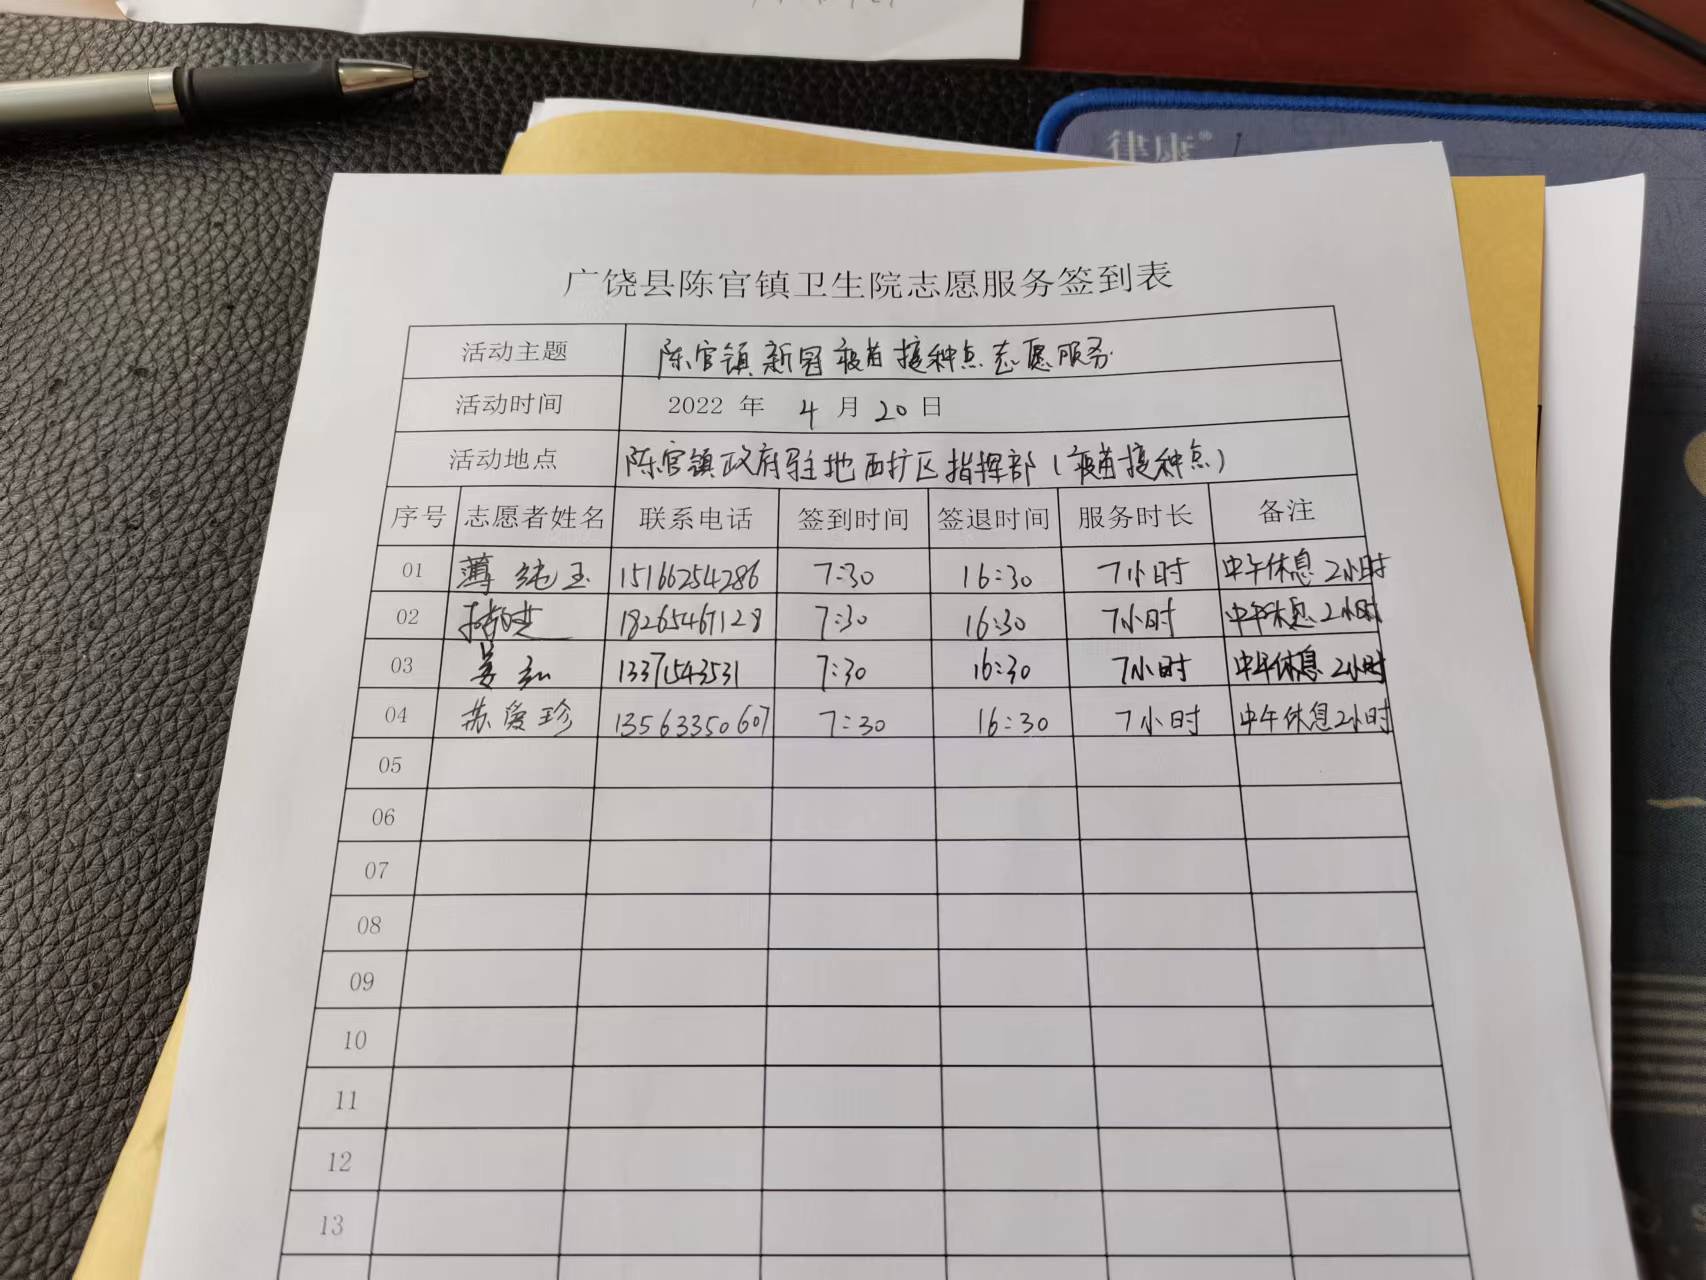 广饶县陈官镇卫生院志愿服务签到表
活动主题 陈官镇新冠疫苗接种点志愿服务
活动时间 2022 年 4 月 20 日
活动地点 陈官镇政府驻地西扩区指挥部(疫苗接种点)
序号 志愿者姓名 联系电话 签到时间 签退时间 服务时长 备注
01 薄纯玉 15166254286 7:30 16:30 7小时 中午休息2小时
02 18265467128 7:30 16:30 7小时 中午休息2小时
03 13371543531 7:30 16:30 7小时 中午休息2小时
04 苏爱珍 13563350607 7:30 16:30 7小时 中午休息2小时
05
06
07
08
09
10
11
12
13